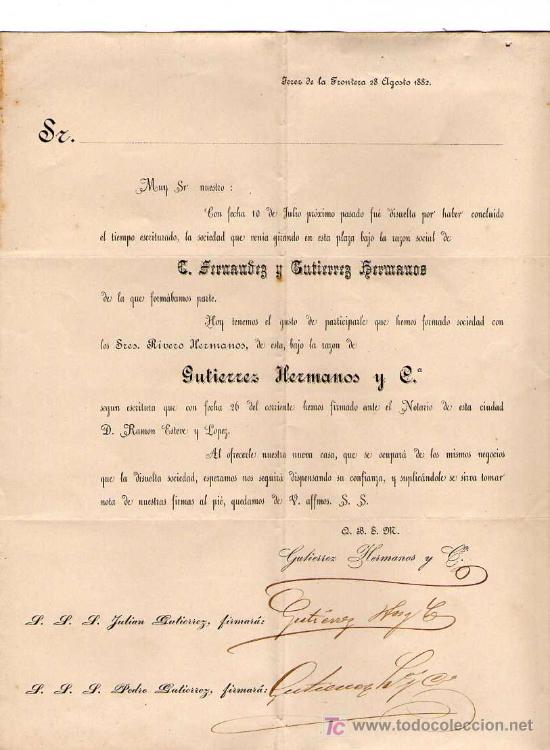 Jerez de la Frontera 28 Agosto 1882.
Sr.
Muy Sr nuestro:
Con fecha 10 de Julio próximo pasado fué disuelta por haber concluido
el tiempo escriturado, la sociedad que venia girando en esta plaza bajo la razon social de
C. Fernandez y Gutierrez Hermanos
de la que formábamos parte.
Hoy tenemos el gusto de participarle que hemos formado sociedad con
los Sres. Rivero Hermanos, de esta, bajo la razon de
Gutierrez Hermanos y C.ª
segun escritura que con fecha 26 del corriente hemos firmado ante el Notario de esta ciudad
D. Ramon Esteve y Lopez.
Al ofrecerle nuestra nueva casa, que se ocupará de los mismos negocios
que la disuelta sociedad, esperamos nos seguirá dispensando su confianza, y suplicándole se sirva tomar
nota de nuestras firmas al pié, quedamos de V. affmos. S. S.
Q. B. S. M.
Gutierrez Hermanos y Cª
S. S. S. Julian Gutierrez, firmará: Gutiérrez Hnos y Cª
S. S. S. Pedro Gutierrez, firmará: Gutierrez Hos y Cª
TC www.todocoleccion.net